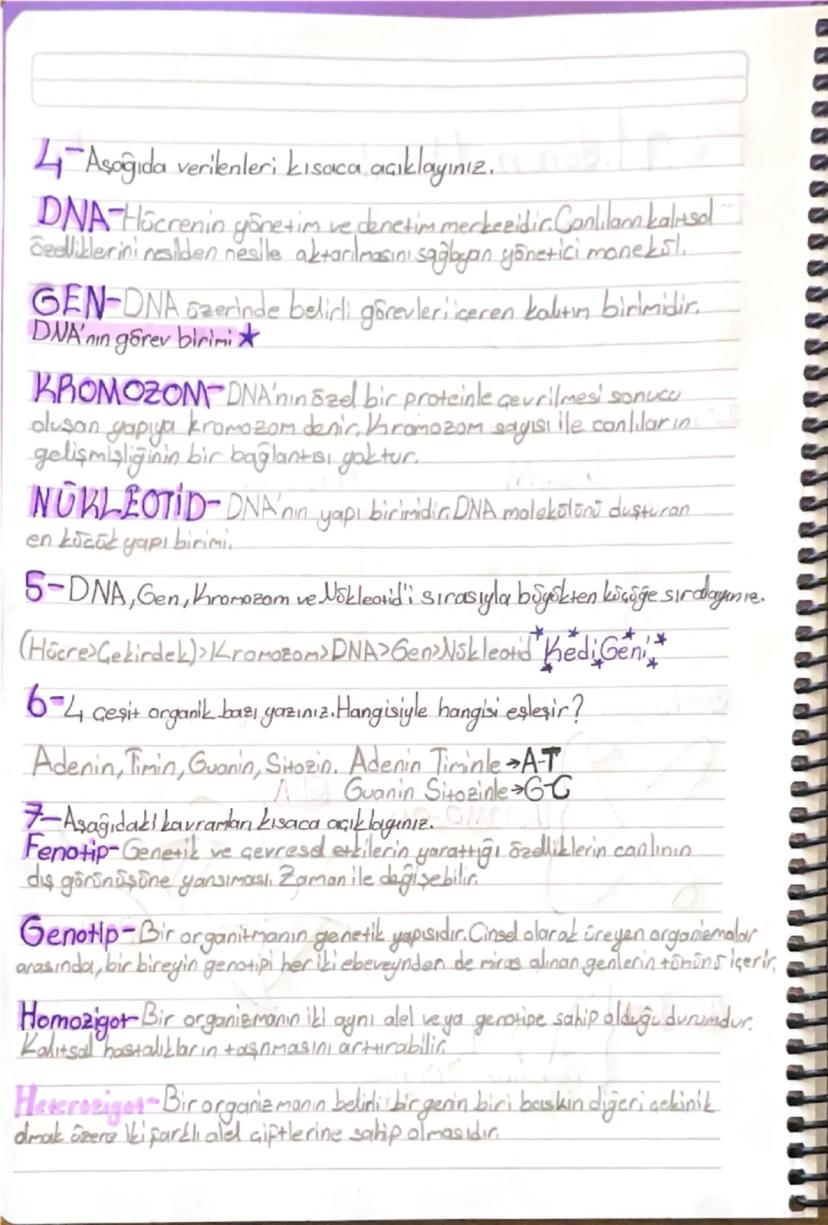 4- Aşağıda verilenleri kısaca açıklayınız.
DNA- Hücrenin yönetim ve denetim merkezidir. Canlıların kalıtsal
özelliklerini nesilden nesile aktarılmasını sağlayan yönetici monekül.
GEN- DNA üzerinde belirli görevleri içeren kalıtım birimidir.
DNA'nın görev birimi ★
KROMOZOM- DNA'nın özel bir proteinle çevrilmesi sonucu
oluşan yapıya kromozom denir. Kromozom sayısı ile canlıların
gelişmişliğinin bir bağlantısı yoktur.
NÜKLEOTİD- DNA'nın yapı birimidir. DNA molekülünü oluşturan
en küçük yapı birimi.
5- DNA, Gen, Kromozom ve Nükleotid'i sırasıyla büyükten küçüğe sıralayınız.
(Hücre>Çekirdek)>Kromozom>DNA>Gen>Nükleotid "Kedi Geni"
6- 4 çeşit organik bazı yazınız. Hangisiyle hangisi eşleşir?
Adenin, Timin, Guanin, Sitozin. Adenin Timinle → A-T
Guanin Sitozinle → G-C
7- Aşağıdaki kavramları kısaca açıklayınız.
Fenotip- Genetik ve çevresel etkilerin yarattığı özelliklerin canlının
dış görünüşüne yansıması. Zaman ile değişebilir.
Genotip- Bir organitmanın genetik yapısıdır. Cinsel olarak üreyen organizmalar
arasında, bir bireyin genotipi her iki ebeveynden de miras alınan genlerin tümünü içerir.
Homozigot- Bir organizmanın iki aynı alel veya genotipe sahip olduğu durumdur.
Kalıtsal hastalıkların taşınmasını arttırabilir.
Heterozigot- Bir organizmanın belirli bir genin biri baskın diğeri çekinik
olmak üzere iki farklı alel çiftlerine sahip olmasıdır.